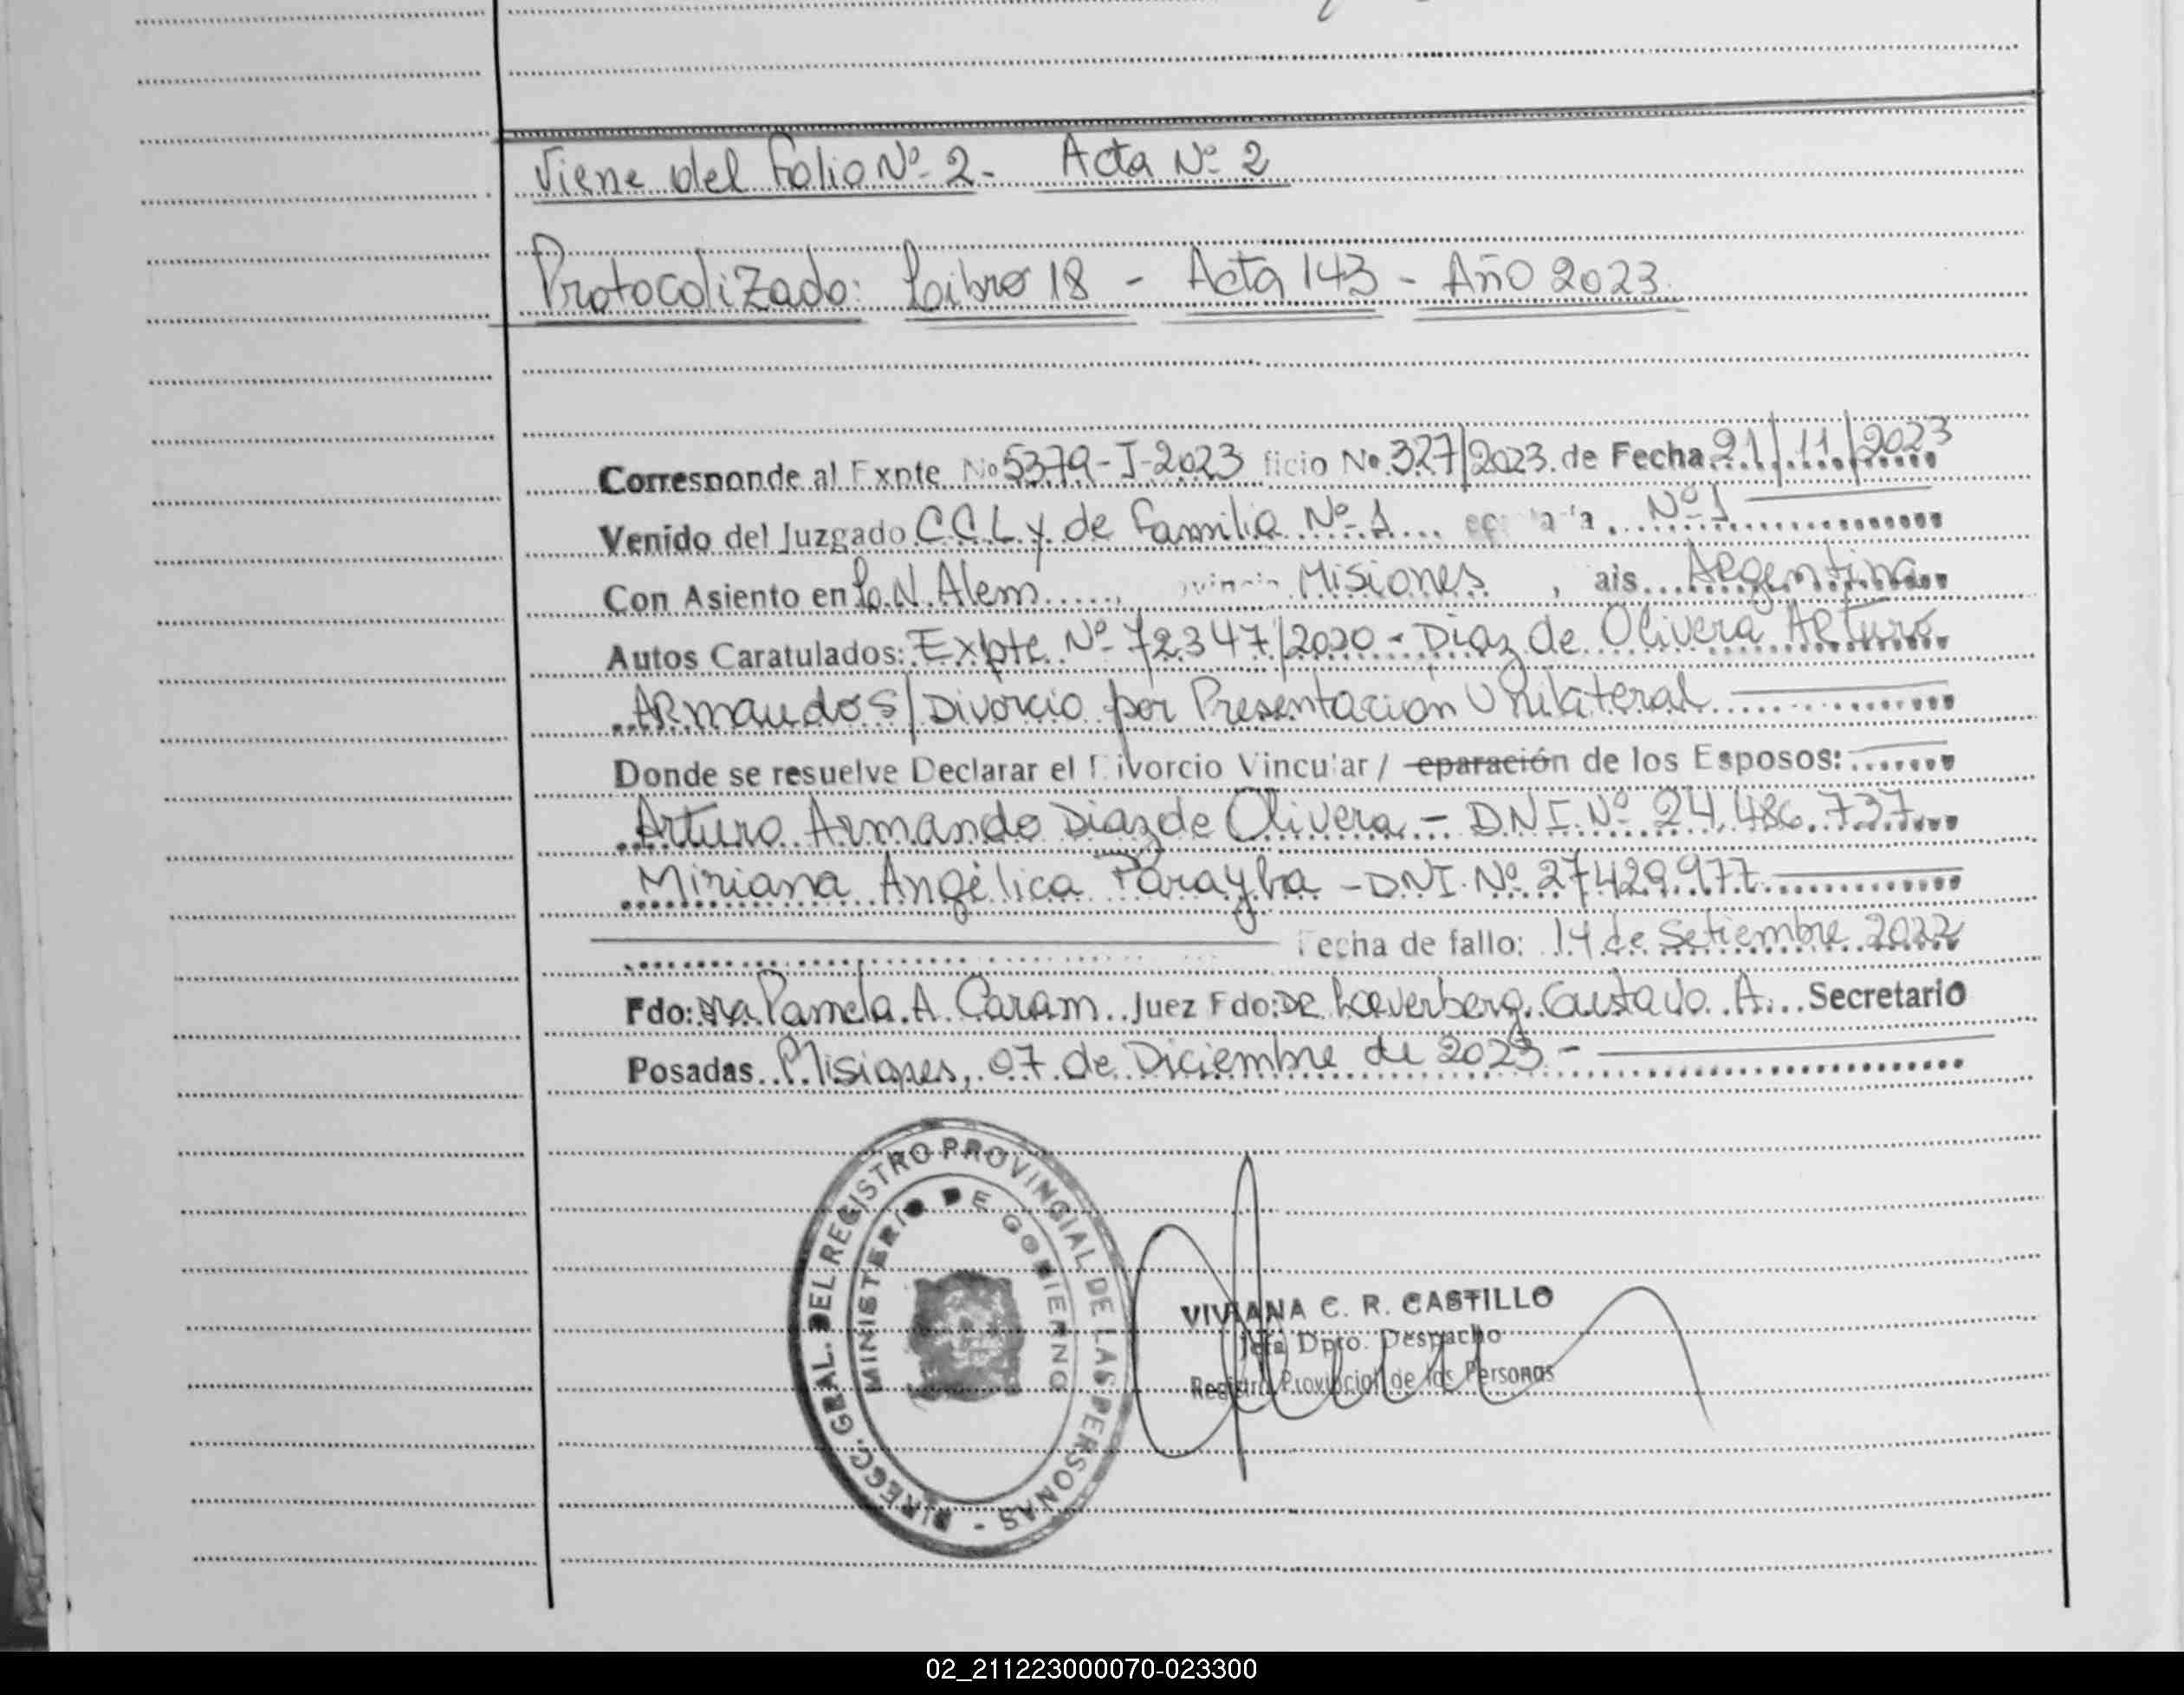 Viene del Folio Nº 2. Acta Nº 2
Protocolizado: Libro 18 - Acta 143 - Año 2023.
Corresponde al Expte No 5379-I-2023 ficio No 327/2023. de Fecha 21/11/2023
Venido del Juzgado C.C.L. y de Familia Nº 1 Nº 1
Con Asiento en L.N. Alem, Misiones, ais Argentina
Autos Caratulados: Expte Nº 72347/2020 - Diaz de Olivera Arturo
Armando S/ Divorcio por Presentación Unilateral
Donde se resuelve Declarar el Divorcio Vincular / eparación de los Esposos:
Arturo Armando Diaz de Olivera - D.N.I. Nº 24.486.737
Miriana Angélica Parayba - DNI. Nº 27429.977
Fecha de fallo: 14 de Setiembre 2022
Fdo: Dra Pamela A. Caram Juez Fdo: DR Gustavo A. Secretario
Posadas Misiones, 07 de Diciembre de 2023 -
DIRECC. GRAL. DEL REGISTRO PROVINCIAL DE LAS PERSONAS -
MINISTERIO DE GOBIERNO
VIVIANA C. R. CASTILLO
Jefa Dpto. Despacho
Registro Provincial de las Personas
02_211223000070-023300